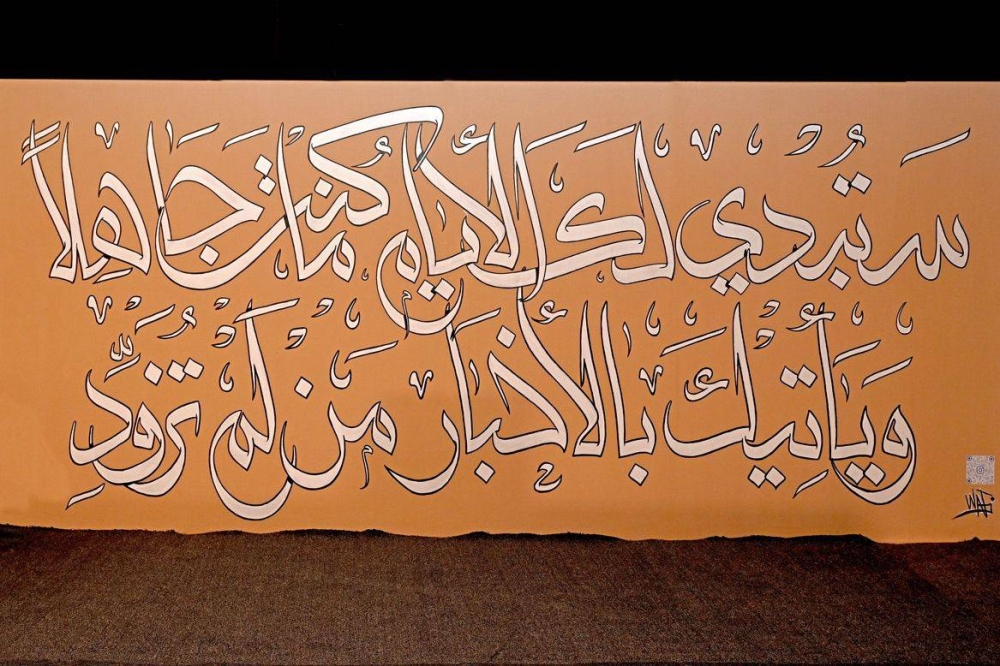 سَتُبْدِي لَكَ الأَيَّامُ مَا كُنْتَ جَاهِلاً
وَيَأْتِيكَ بِالأَخْبَارِ مَنْ لَمْ تُزَوِّدِ